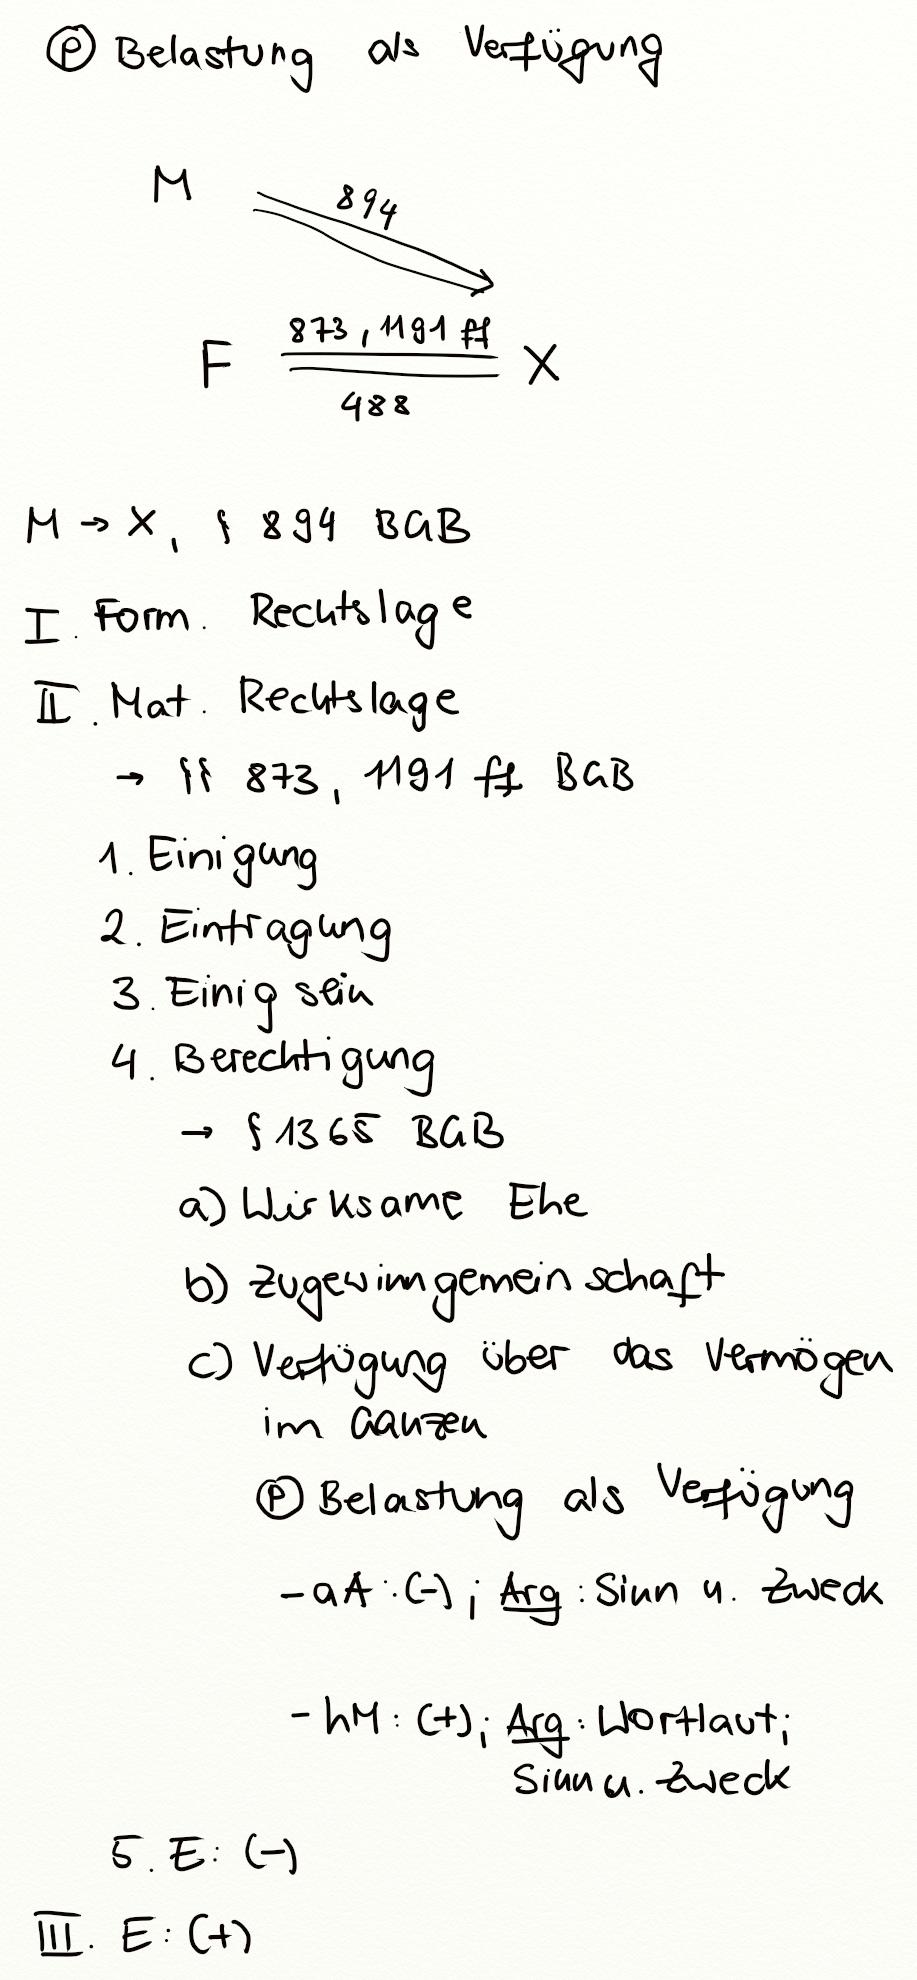 Ⓟ Belastung als Verfügung
M
894
873, 1191 ff
F X
488
M → X, § 894 BGB
I. Form. Rechtslage
II. Mat. Rechtslage
→ §§ 873, 1191 ff BGB
1. Einigung
2. Eintragung
3. Einig sein
4. Berechtigung
→ § 1365 BGB
a) Wirksame Ehe
b) Zugewinngemeinschaft
c) Verfügung über das Vermögen
im Ganzen
Ⓟ Belastung als Verfügung
- aA: (-); Arg: Sinn u. Zweck
- hM: (+); Arg: Wortlaut;
Sinn u. Zweck
5. E: (-)
III. E: (+)